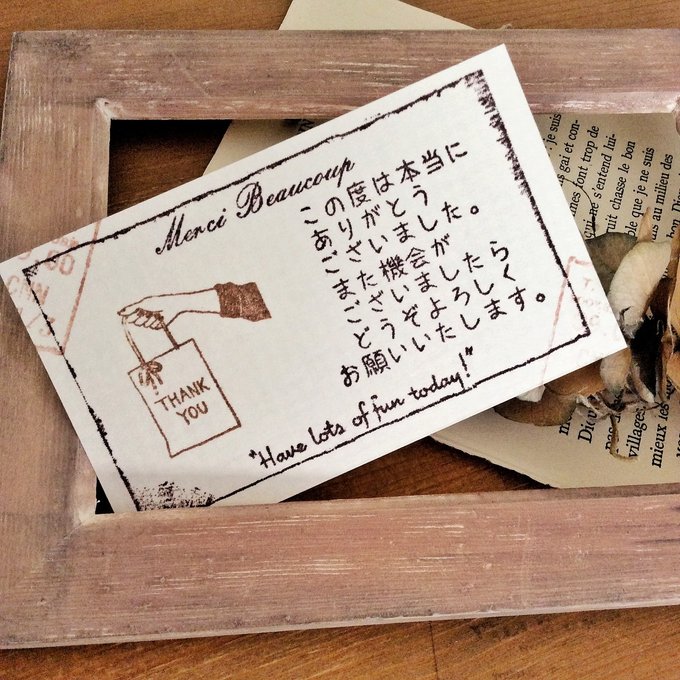 Merci Beaucoup
この度は本当に
ありがとう
ございました。
また機会が
ございましたら
どうぞよろしく
お願いいたします。
THANK
YOU
"Have lots of fun today!"
je suis
gai et con-
font trop de
ne s'entend lui-
chasse le bon
que je ne suis
au milieu des
villages,
mieux les